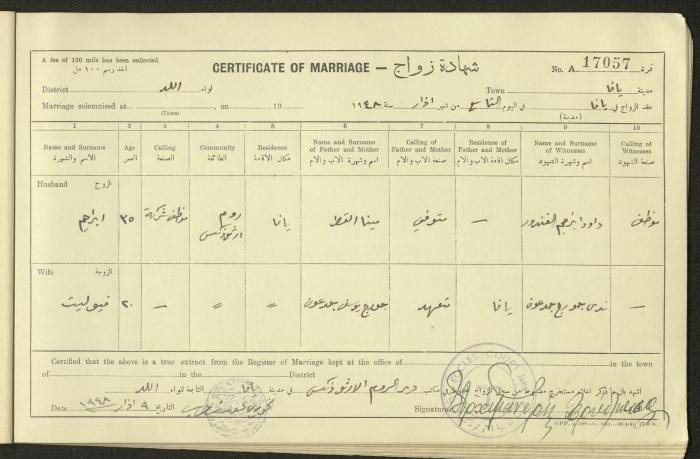 A fee of 100 mils has been collected.
اخذ رسم ١٠٠ مل
CERTIFICATE OF MARRIAGE — شهادة زواج
No. A 17057 نمرة
District لواء اللد
Town مدينة يافا
Marriage solemnised at , on 19
(Town)
عقد الزواج في يافا في اليوم التاسع من شهر اذار سنة ١٩٤٨
(مدينة)
1 2 3 4 5 6 7 8 9 10
Name and Surname
الاسم والشهرة
Age
العمر
Calling
الصنعة
Community
الطائفة
Residence
مكان الاقامة
Name and Surname of Father and Mother
اسم وشهرة الاب والام
Calling of Father and Mother
صنعة الاب والام
Residence of Father and Mother
مكان اقامة الاب والام
Name and Surname of Witnesses
اسم وشهرة الشهود
Calling of Witnesses
صنعة الشهود
Husband الزوج
ابراهيم
٣٥
موظف شركة
روم ارثوذكس
يافا
مينا القط
متوفي
—
داود ابراهيم الغندور
موظف
Wife الزوجة
فيوليت
٢٠
—
〃
〃
جورج يوسف جدعون
متعهد
يافا
ندى جورج جدعون
—
Certified that the above is a true extract from the Register of Marriage kept at the office of in the town
of in the District
دير الروم الارثوذكس في مدينة يافا التابعة للواء اللد
Date التاريخ ٩ اذار ١٩٤٨
Signature